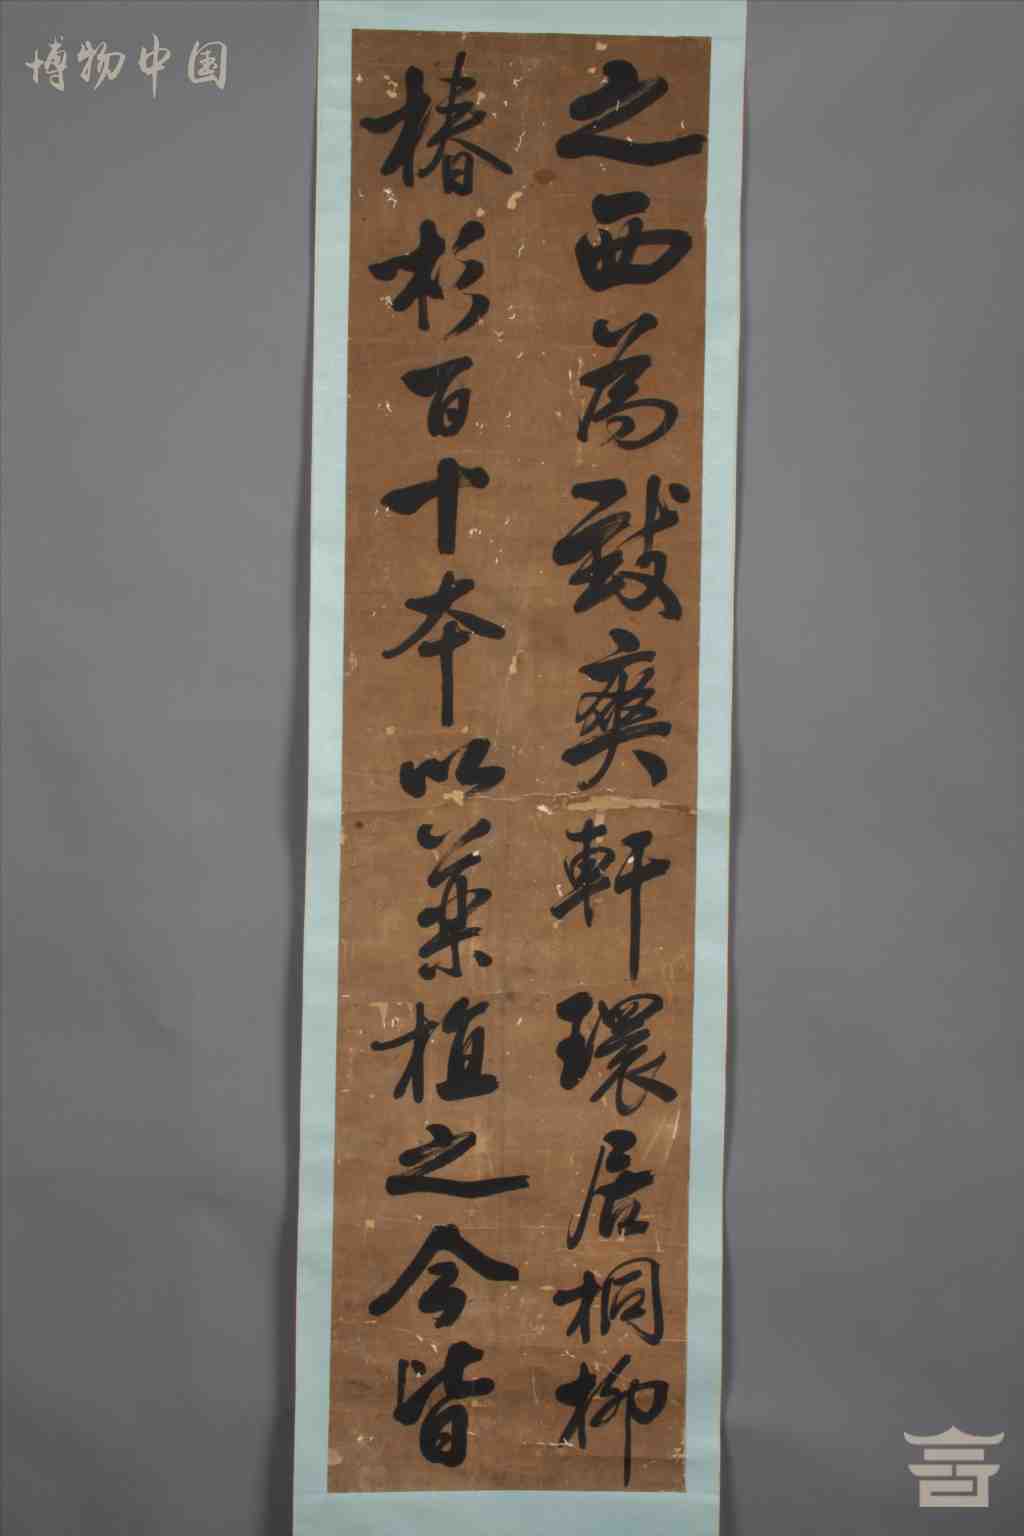 博物中国
之西為致爽軒環居桐柳
椿杉百十本以藥植之今皆